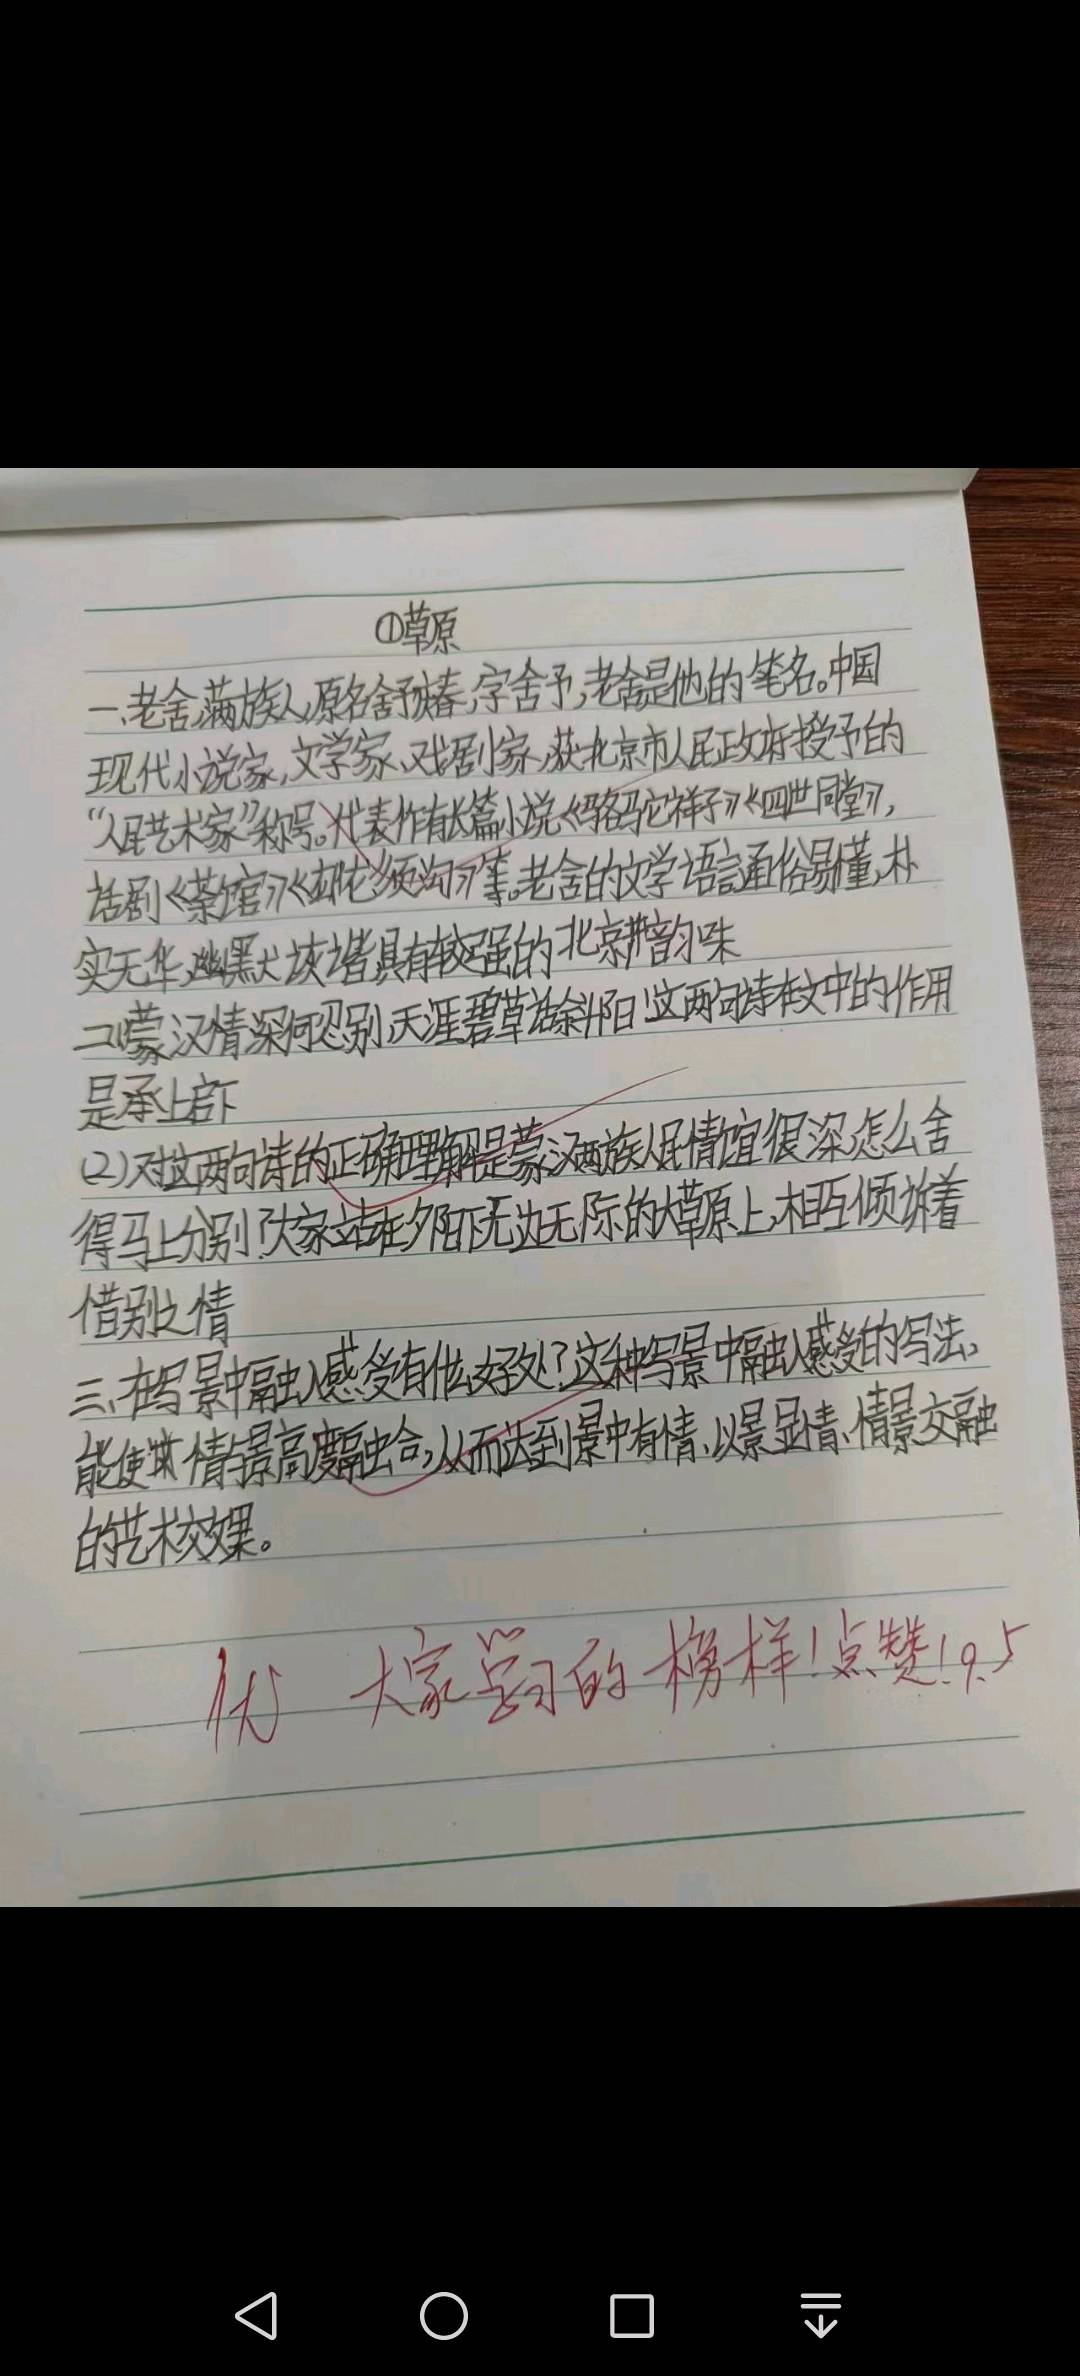 ①草原
一、老舍,满族人,原名舒庆春,字舍予,老舍是他的笔名。中国
现代小说家,文学家、戏剧家,获北京市人民政府授予的
“人民艺术家”称号。代表作有长篇小说《骆驼祥子》《四世同堂》,
话剧《茶馆》《龙须沟》等。老舍的文学语言通俗易懂,朴
实无华,幽默诙谐,具有较强的北京韵味
二(1)蒙汉情深何忍别,天涯碧草话斜阳!这两句诗在文中的作用
是承上启下
(2)对这两句诗的正确理解是蒙汉两族人民情谊很深,怎么舍
得马上分别?大家站在夕阳下无边无际的大草原上,相互倾诉着
惜别之情
三、在写景中融入感受有什么好处?这种写景中融入感受的写法,
能使 情与景高度融合,从而达到景中有情、以景显情、情景交融
的艺术效果。
优 大家学习的榜样!点赞!9.5